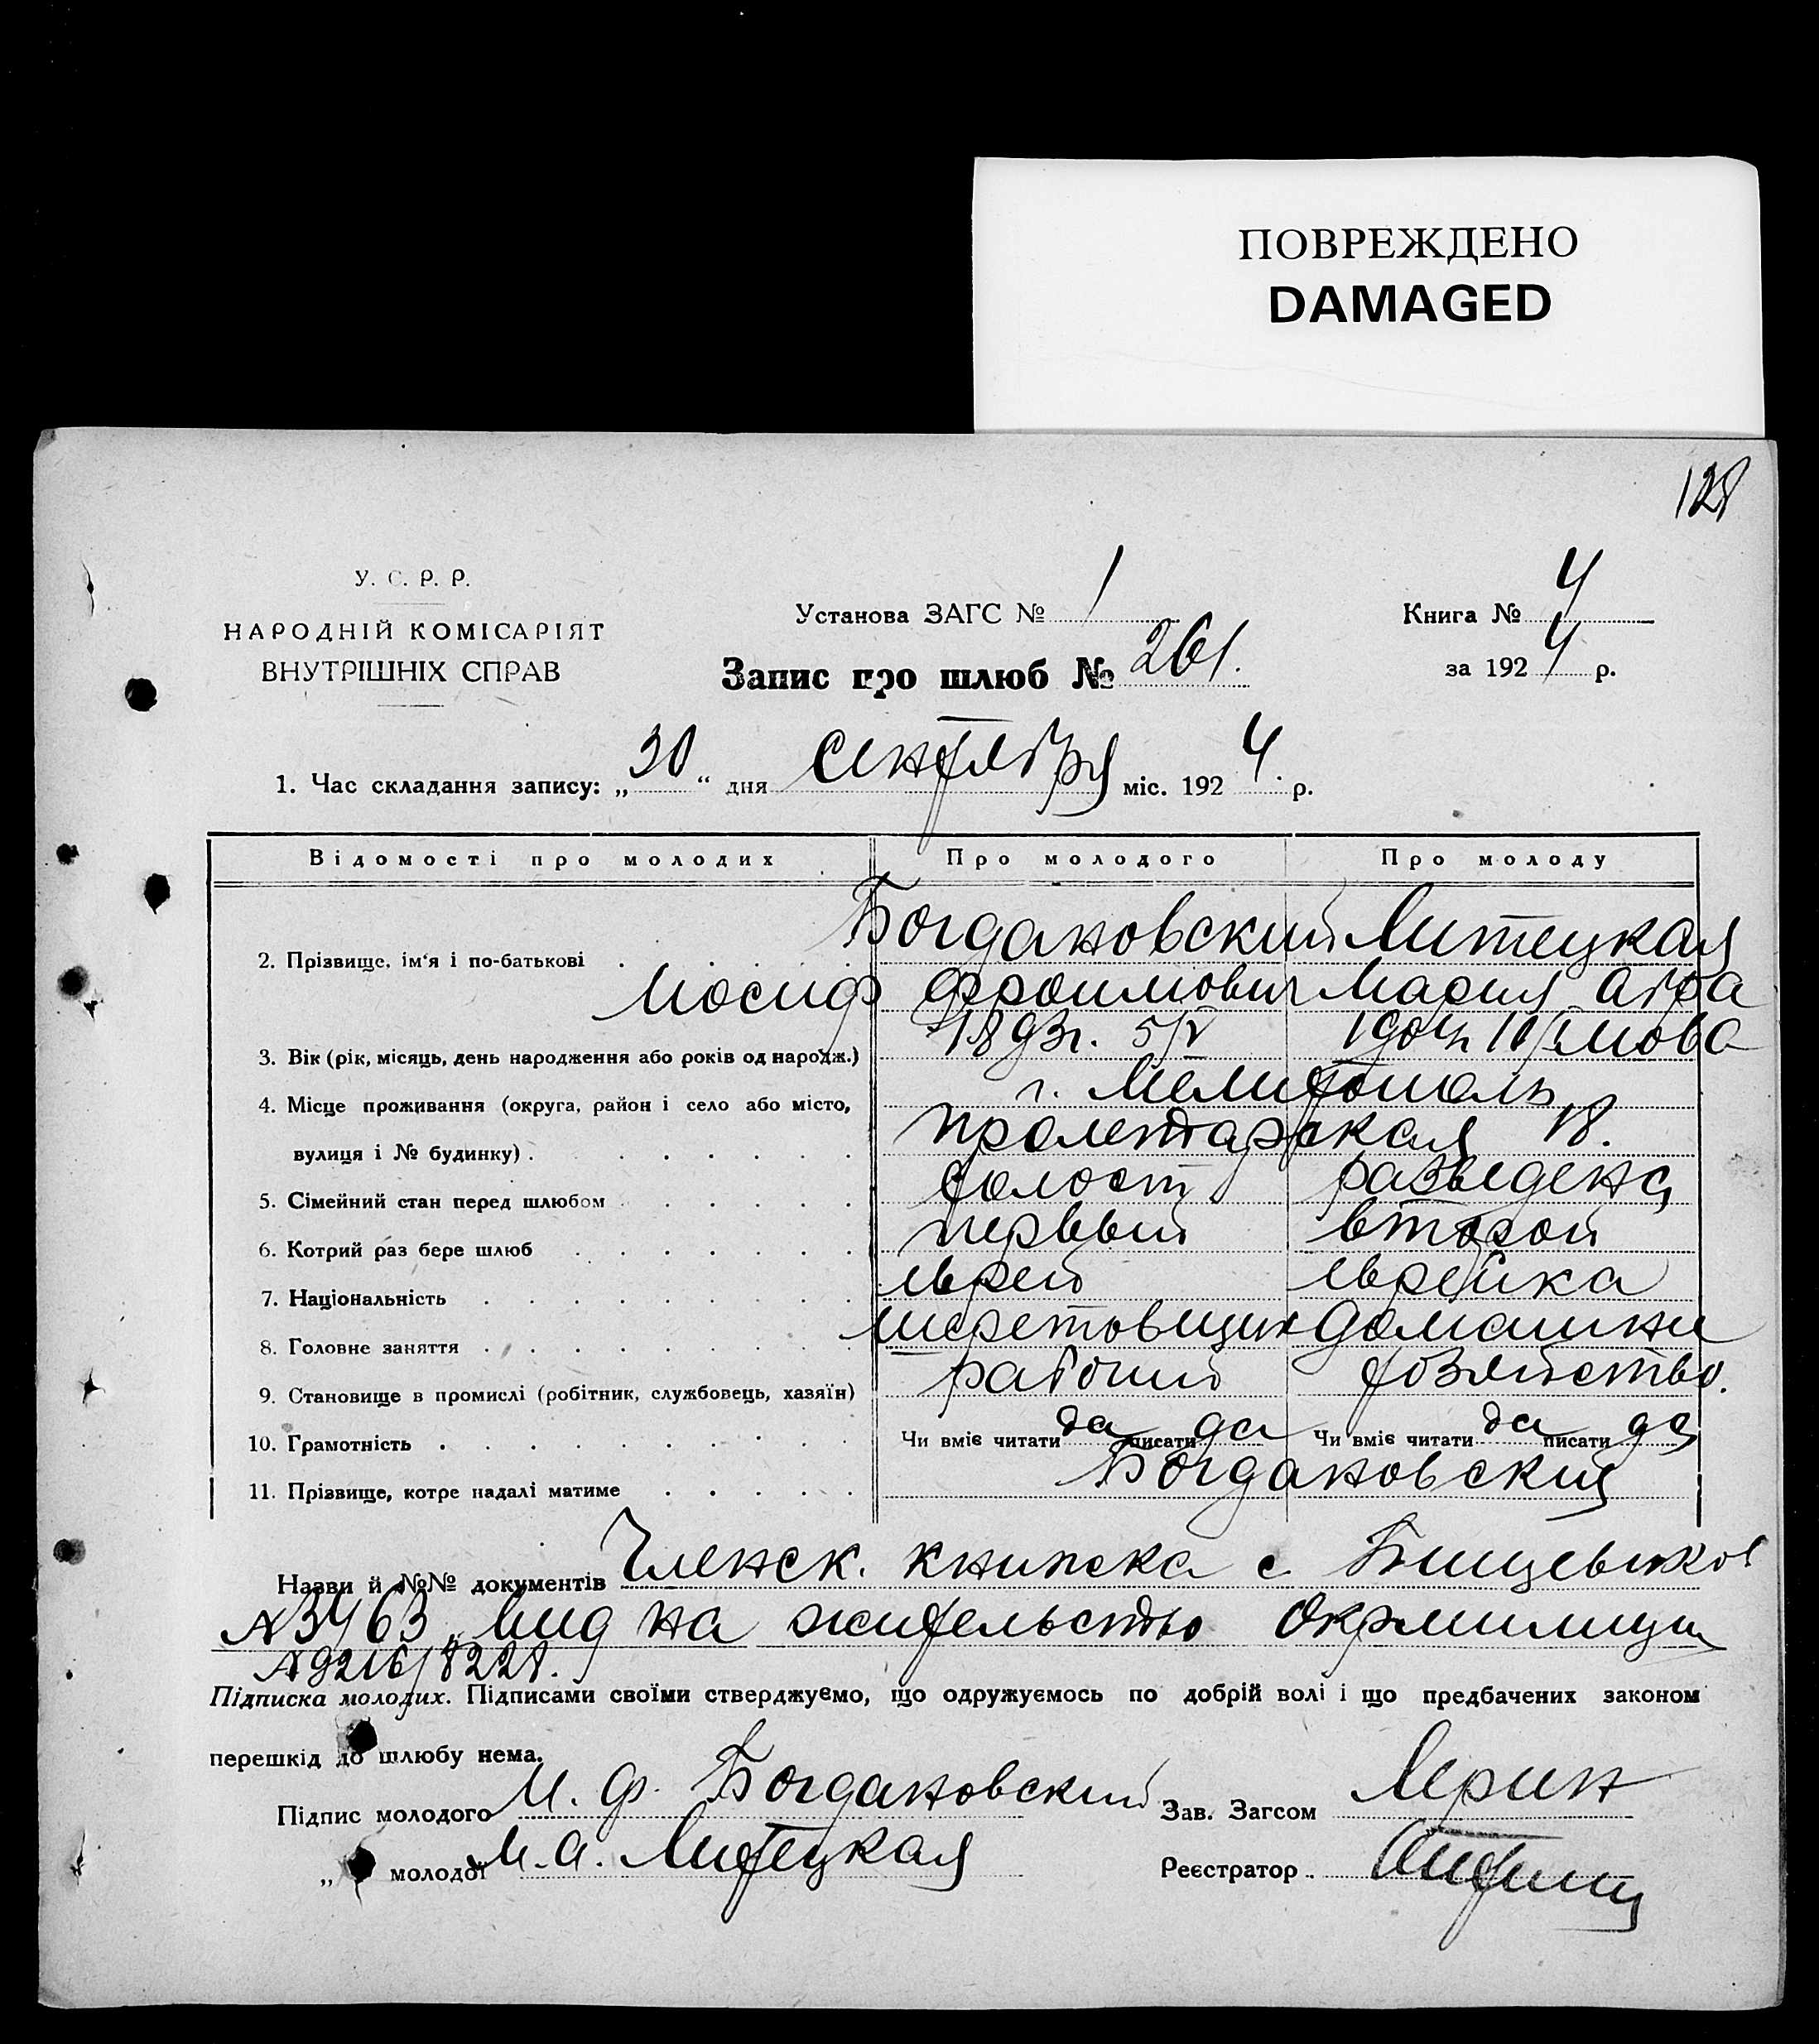 ПОВРЕЖДЕНО
DAMAGED
128
У. С. Р. Р.
НАРОДНІЙ КОМІСАРІЯТ
ВНУТРІШНІХ СПРАВ
Установа ЗАГС № 1
Книга № 4
Запис про шлюб № 261.
за 1924 р.
1. Час складання запису: „30“ дня сентября міс. 1924. р.
Відомості про молодих Про молодого Про молоду
2. Прізвище, ім'я і по-батькові Богдановский Литецкая
Иосиф Фроимович Мария Абра
мова
3. Вік (рік, місяць, день народження або років од народж.) 1893г. 5/V
4. Місце проживання (округа, район і село або місто, г. Мелитополь
вулиця і № будинку) Пролетарская 18.
5. Сімейний стан перед шлюбом холост разведена
6. Котрий раз бере шлюб первый второй
7. Національність еврей еврейка
8. Головне заняття домашнее
9. Становище в промислі (робітник, службовець, хазяїн) рабочий хозяйство.
10. Грамотність Чи вміє читати да писати да Чи вміє читати да писати да
11. Прізвище, котре надалі матиме Богдановский
Назви й №№ документів Членск. книжка с. Пищевиков
№3463, вид на жительство Окрмилиции
№9216/8228.
Підписка молодих. Підписами своїми стверджуємо, що одружуємось по добрій волі і що предбачених законом
перешкід до шлюбу нема.
Підпис молодого И. Ф. Богдановский Зав. Загсом Лерин
„ молодої М. А. Литецкая Реєстратор